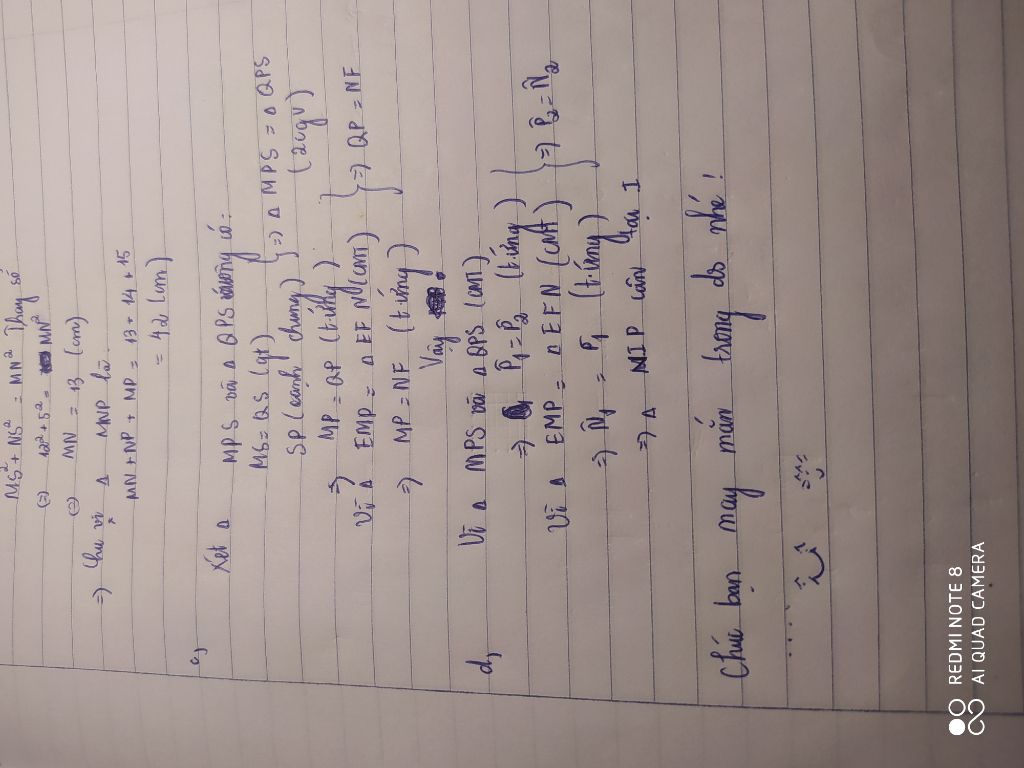 MS² + NS² = MN² Thay số
(=) 12² + 5² = MN²
(=) MN = 13 (cm)
=) Chu vi Δ MNP là:
MN + NP + MP = 13 + 14 + 15
= 42 (cm)
c, Xét Δ MPS và Δ QPS có:
MS = QS (gt)
SP (cạnh chung) } =) Δ MPS = Δ QPS (2cgv)
=) MP = QP (t.ứng)
Vì Δ EMP = Δ EFN (CMT) } =) QP = NF
=) MP = NF (t.ứng)
Vậy
d, Vì Δ MPS và Δ QPS (cmt)
=) P̂₁ = P̂₂ (t.ứng)
Vì Δ EMP = Δ EFN (CMT) } =) P̂₂ = N̂₂
=) N̂₁ = P̂₁ (t.ứng)
=) Δ NIP cân tại I
Chúc bạn may mắn trong ds nhé!
REDMI NOTE 8
AI QUAD CAMERA